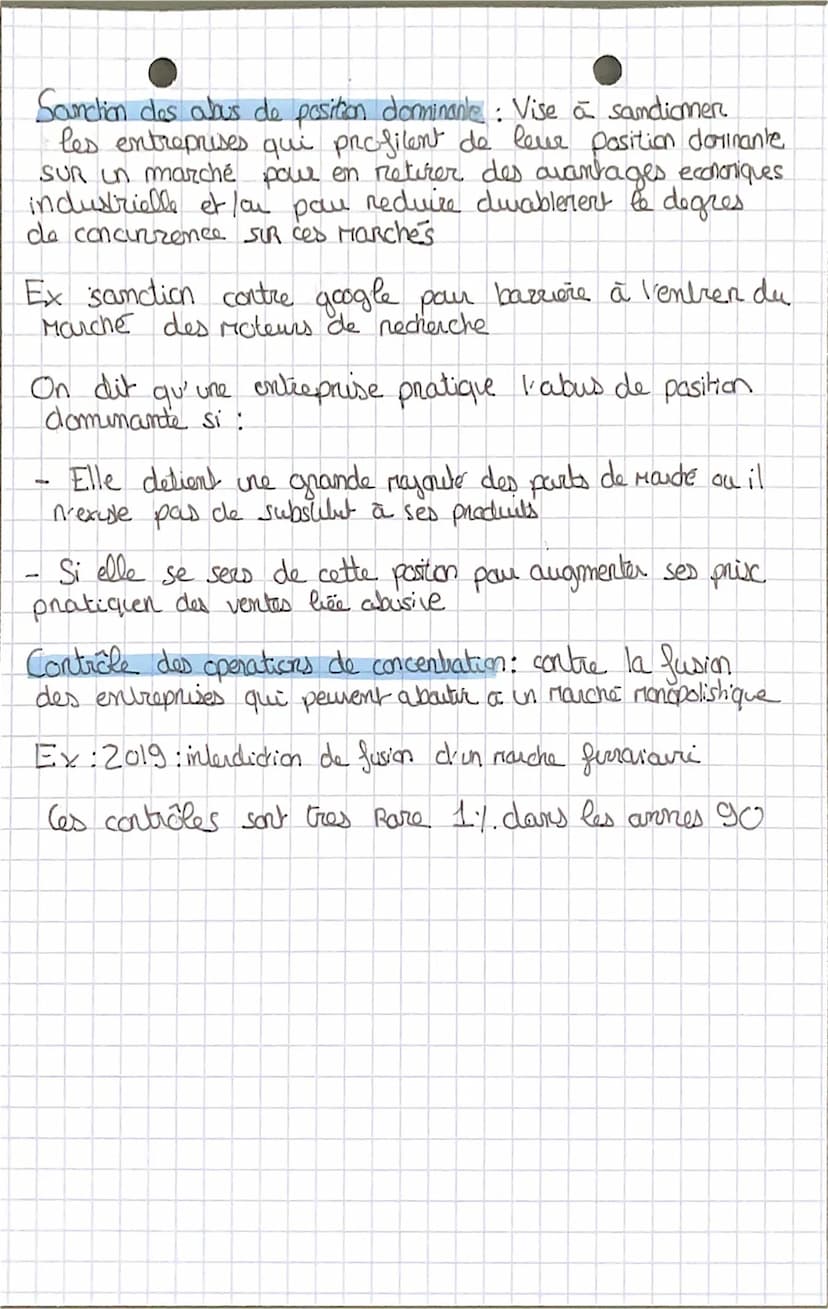 Sanction des abus de position dominante : Vise à sanctionner
les entreprises qui profilent de leur position dominante
sur un marché pour en retirer des avantages economiques
industrielle et/ou pour reduire durablement le degres
de concurrence sur ces marchés
Ex sanction contre google pour barrière à l'entrer du
marché des moteurs de recherche
On dit qu'une entreprise pratique l'abus de position
dominante si :
- Elle detient une grande majorité des parts de marché ou il
n'existe pas de substitut à ses produits
- Si elle se sers de cette positon pour augmenter ses prix
pratiquer des ventes liée abusive
Contrôle des operations de concentration : contre la fusion
des entreprises qui peuvent aboutir a un marché monopolistique
Ex : 2019 : interdiction de fusion d'un marche
Ces contrôles sont tres Rare 1% dans les annes 90